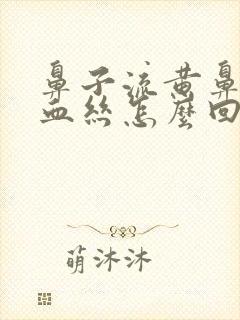 鼻子流黄鼻
血丝怎麽回
萌沐沐